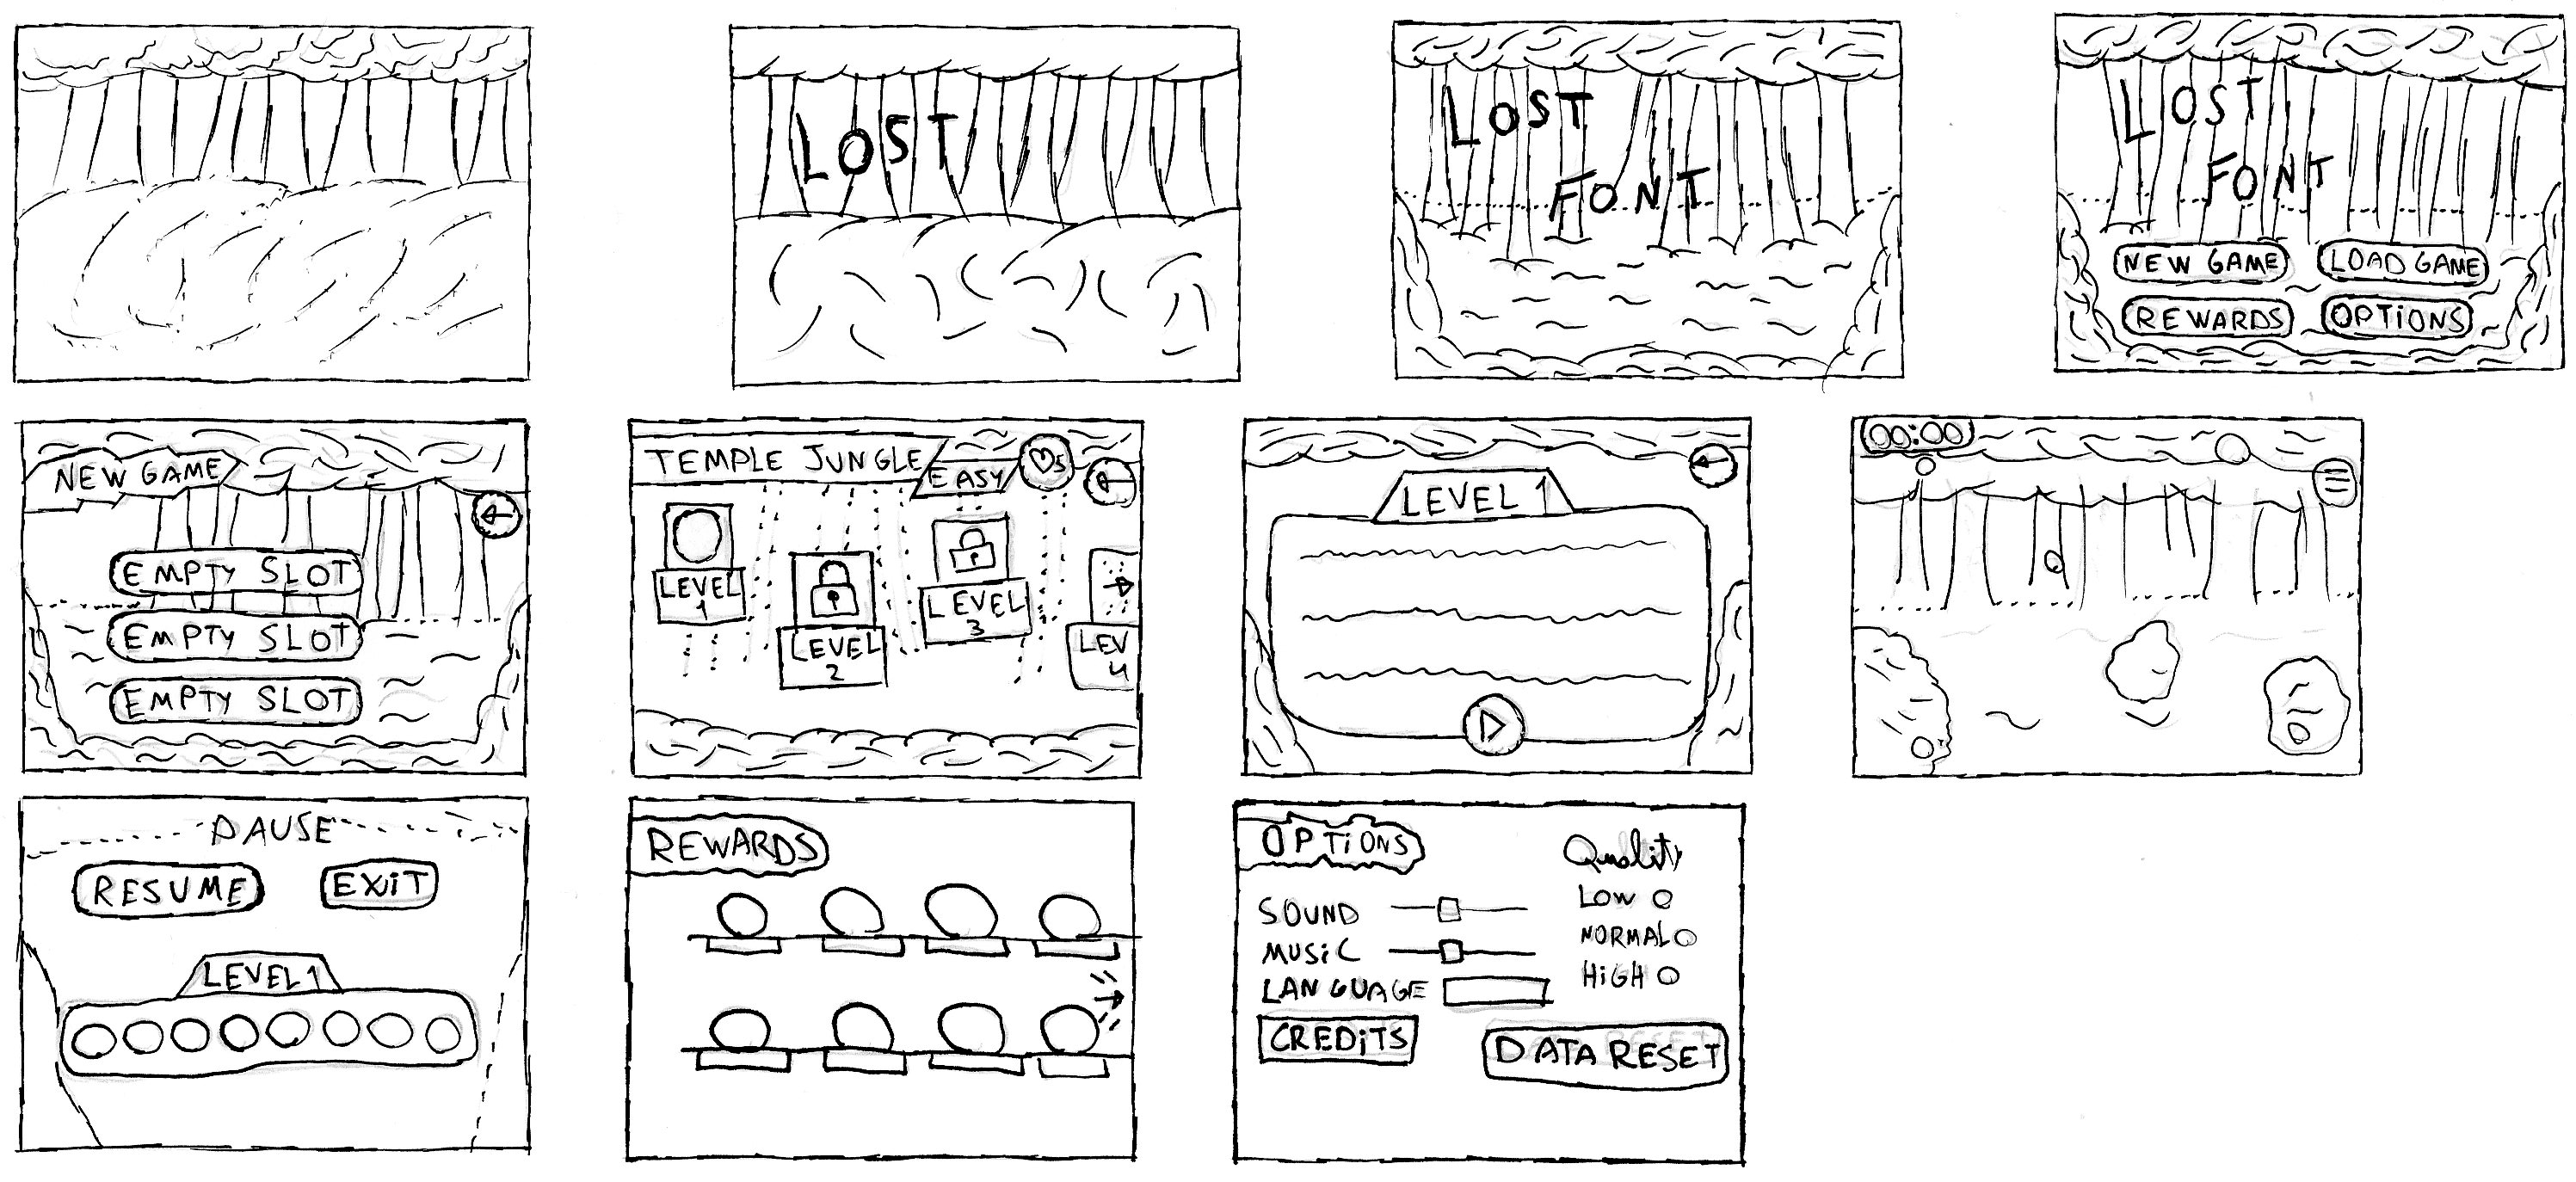 LOST
LOST
FONT
LOST
FONT
NEW GAME
LOAD GAME
REWARDS
OPTiONS
NEW GAME
EMPTY SLOT
EMPTY SLOT
EMPTY SLOT
TEMPLE JUNGLE
EASY
5
LEVEL
1
LEVEL
2
LEVEL
3
LEV
4
LEVEL 1
00:00
PAUSE
RESUME
EXiT
LEVEL 1
REWARDS
OPTiONS
Quality
LOW
NORMAL
HiGH
SOUND
MUSiC
LANGUAGE
CREDiTS
DATA RESET